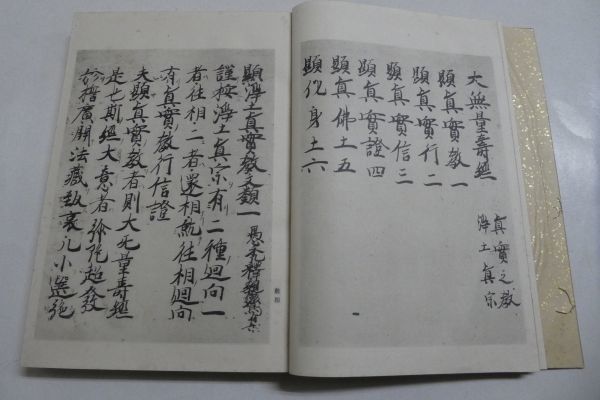 大無量壽經
真實之教
淨土真宗
顕真實教一
顕真實行二
顕真實信三
顕真實證四
顕真佛土五
顕化身土六
顕淨土真實教文類一
愚禿釋親鸞集
謹按淨土真宗有二種廻向一
者往相二者還相就往相廻向
有真實教行信證
夫顕真實教者則大无量壽經
是也斯經大意者弥陀超發
於誓廣開法藏致哀凡小選施
教相